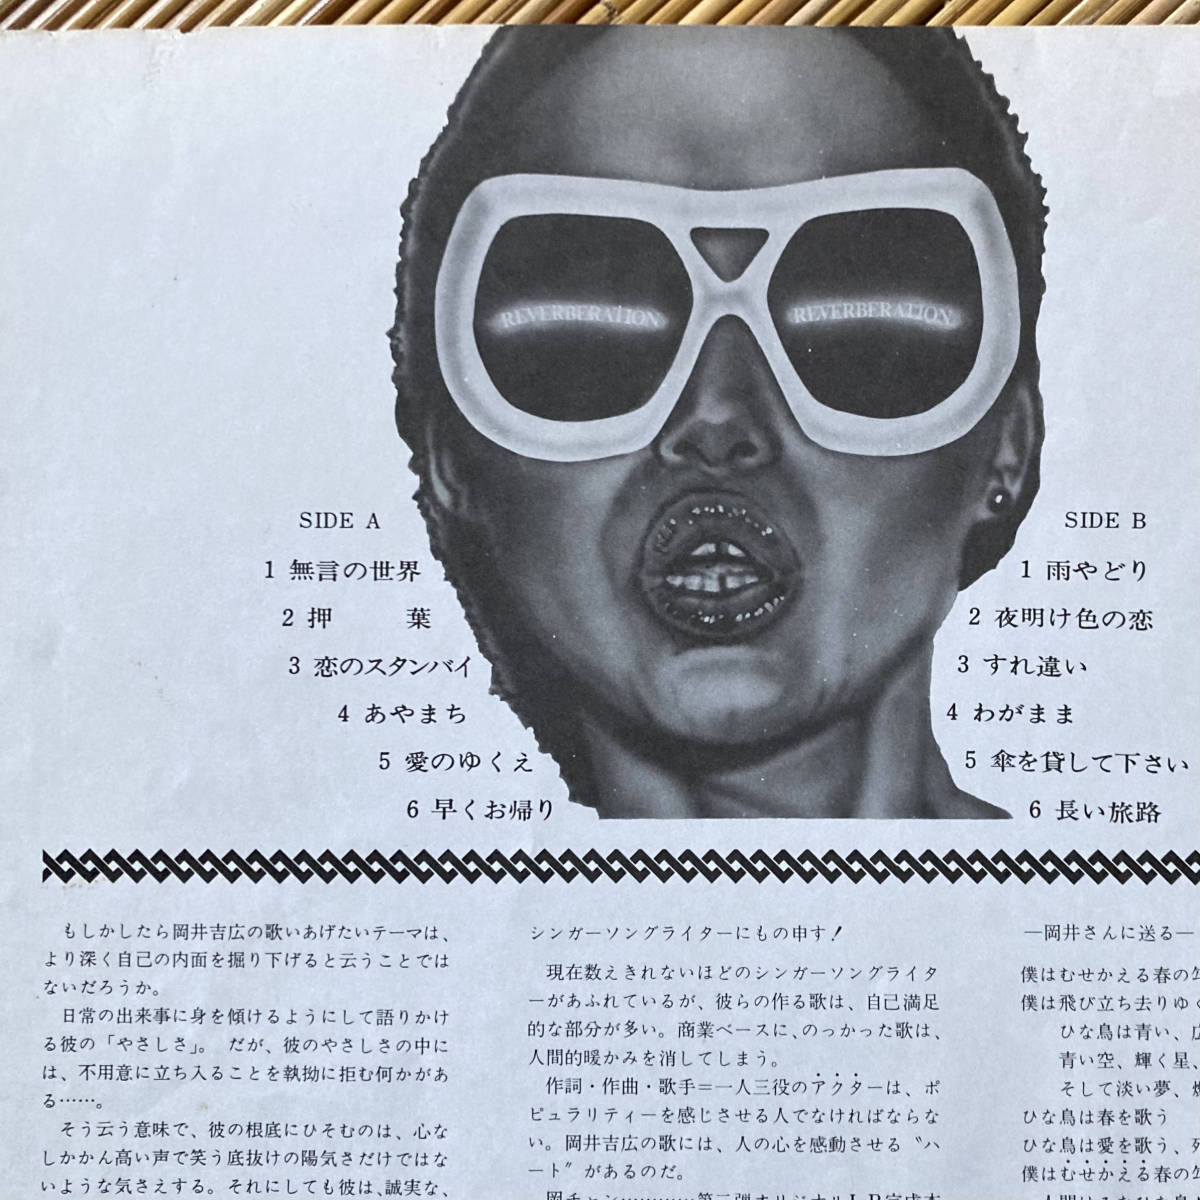 REVERBERATION
REVERBERATION
SIDE A
1 無言の世界
2 押 葉
3 恋のスタンバイ
4 あやまち
5 愛のゆくえ
6 早くお帰り
SIDE B
1 雨やどり
2 夜明け色の恋
3 すれ違い
4 わがまま
5 傘を貸して下さい
6 長い旅路
もしかしたら岡井吉広の歌いあげたいテーマは、
より深く自己の内面を掘り下げると云うことでは
ないだろうか。
日常の出来事に身を傾けるようにして語りかけ
る彼の「やさしさ」。だが、彼のやさしさの中に
は、不用意に立ち入ることを執拗に拒む何かがあ
る……。
そう云う意味で、彼の根底にひそむのは、心な
しかかん高い声で笑う底抜けの陽気さだけではな
いような気さえする。それにしても彼は、誠実な、
シンガーソングライターにもの申す！
現在数えきれないほどのシンガーソングライタ
ーがあふれているが、彼らの作る歌は、自己満足
的な部分が多い。商業ベースに、のっかった歌は、
人間的暖かみを消してしまう。
作詞・作曲・歌手＝一人三役のアクターは、ポ
ピュラリティーを感じさせる人でなければならな
い。岡井吉広の歌には、人の心を感動させる〝ハ
ート〞があるのだ。
岡チャン…………第二弾オリジナルLP完成本
―岡井さんに送る―
僕はむせかえる春の
僕は飛び立ち去りゆく
ひな鳥は青い、
青い空、輝く星、
そして淡い夢、
ひな鳥は春を歌う
ひな鳥は愛を歌う、
僕はむせかえる春の